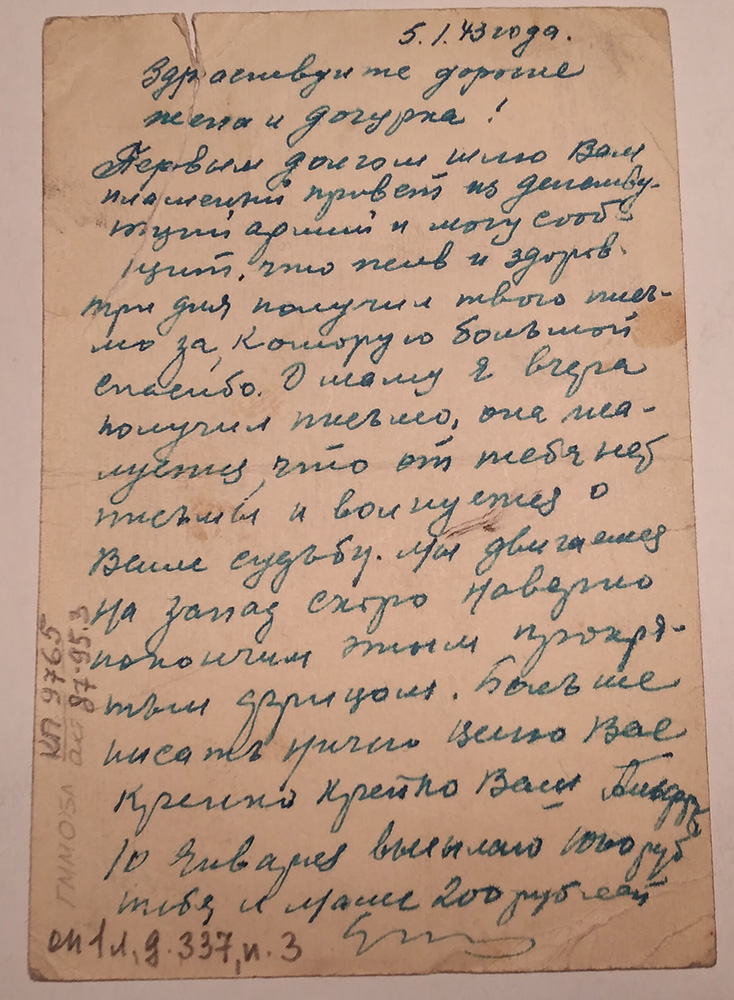 5.1.43 года.
Здраствуйте дорогие
жена и дочурка!
Первым долгом шлю Вам
пламений привет из действу-
ющий армий и могу сооб-
щит, что жив и здоров.
три дня получил твого пись-
мо за, которую большой
спасибо. О маму я вчера
получил письмо, она жа-
луется, что от тебя нет
письмы и волнуется о
Ваше судьбу. Мы двигаемся
на запад скоро наверно
покончим этым прокря-
тым фрицом. Больше
писать ничего целую Вас
крепко крепко Ваш
10 Января высылаю 1000 руб
тебя и маме 200 рублей
КП 9765
оп 1л, д. 337, п. 3